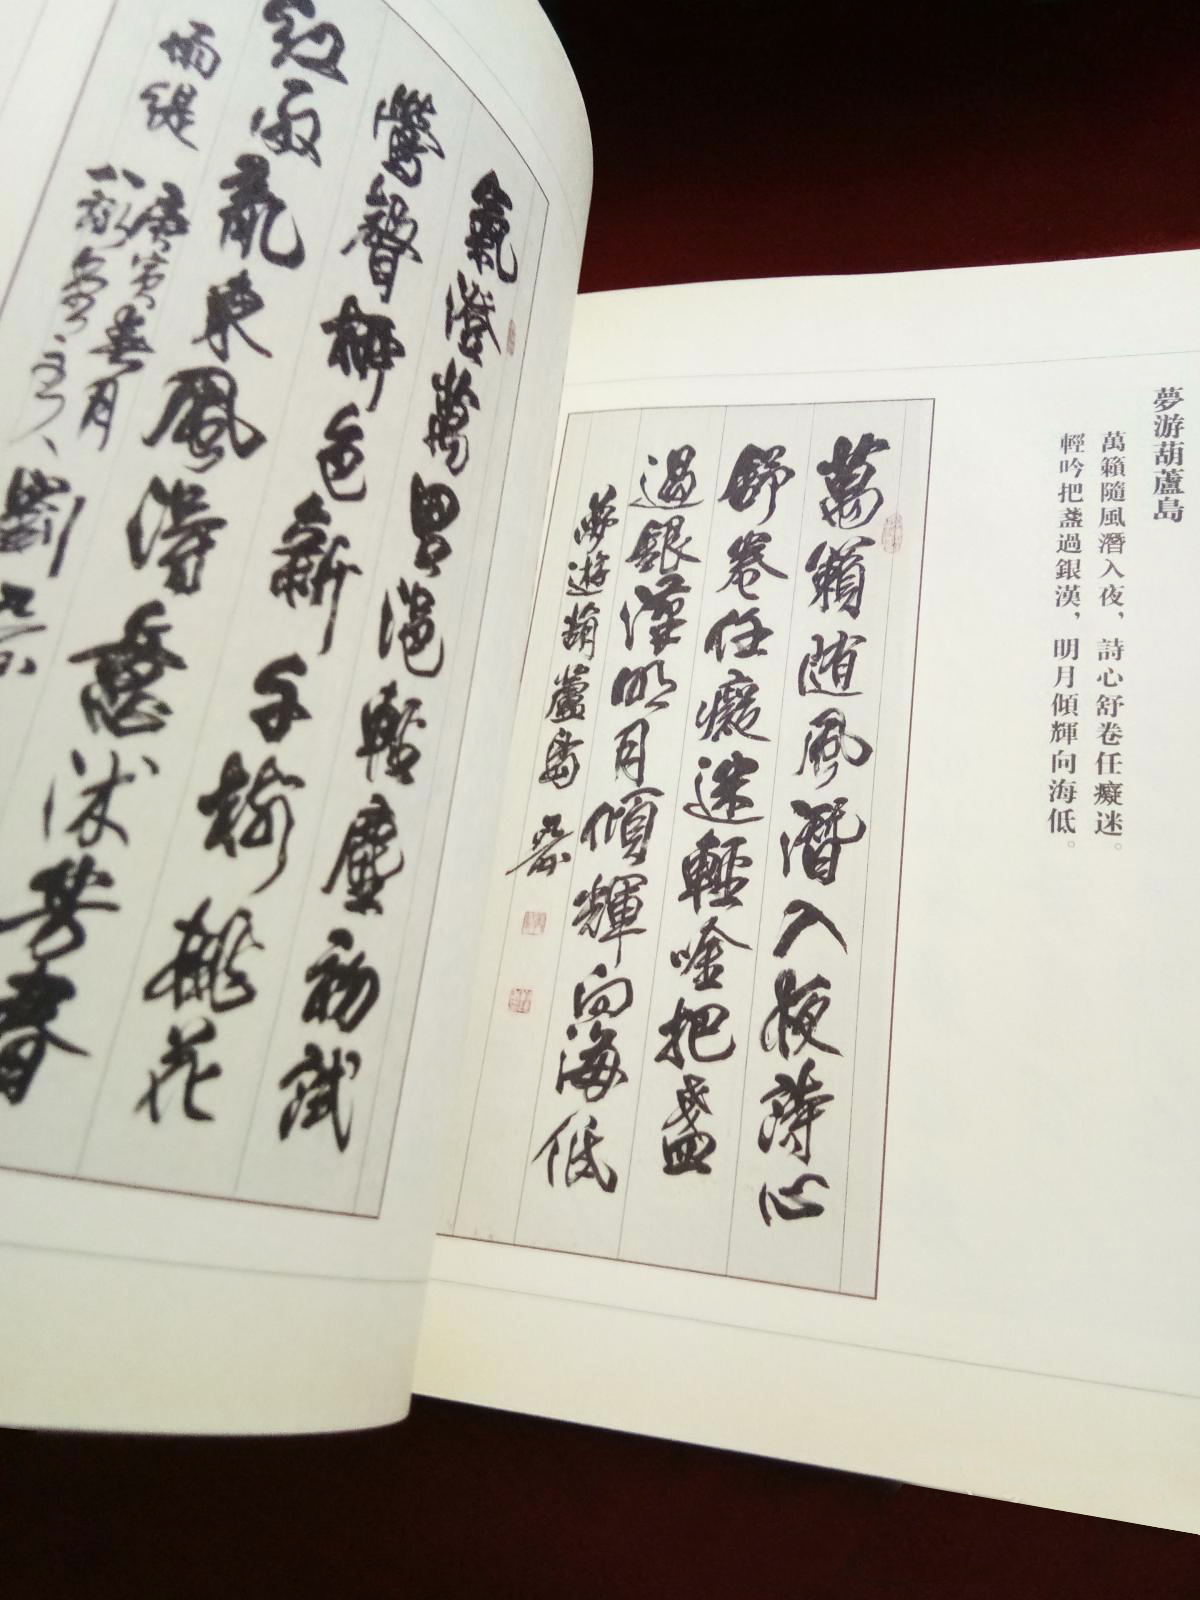 夢游葫蘆島
萬籟隨風潛入夜，詩心舒卷任癡迷。
輕吟把盞過銀漢，明月傾輝向海低。
萬籟随風潛入夜詩心
舒卷任癡迷輕唫把盞
過銀漢明月傾輝向海低
夢遊葫蘆島
氣澄萬里浥輕塵初試
鶯聲柳色新千樹桃花
紅雨亂東風濤意沐芳春
雨緹
庚寅春月
劉